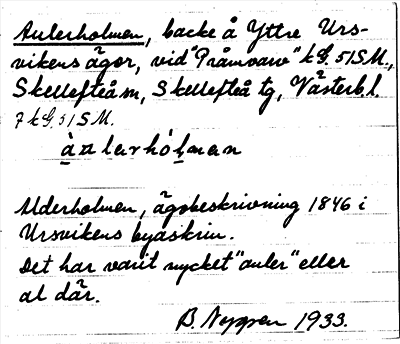 Aulerholmen, backe å Yttre Urs-
vikens ägor, vid "Pråmvarv" k L. 51 SM.,
Skellefteå sn, Skellefteå tg, Västerb. l.
7 k L. 51 SM.
àu lɐrhólmɐn
Alderholmen, ägobeskrivning 1846 i
Ursvikens byaskrin.
Det har varit mycket "auler" eller
al där.
B. Nygren 1933.